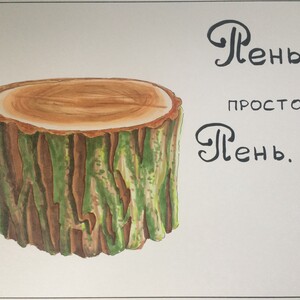 Пень
просто
Пень.